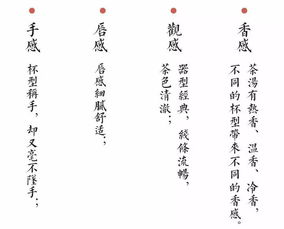 香感
茶湯有熱香、溫香、冷香，
不同的杯型帶來不同的香感。
觀感
器型經典，綫條流暢，
茶色清澈；
唇感
唇感細膩舒适；
手感
杯型稱手，却又毫不墜手；